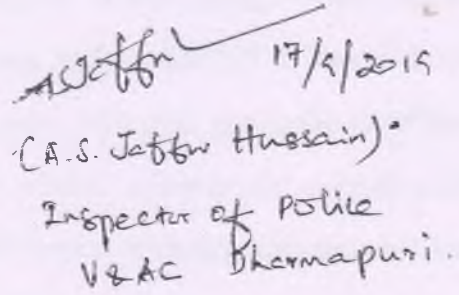 A.S Jaffur 17/9/2019
(A.S. Jaffur Hussain)
Inspector of Police
V&AC Dharmapuri.